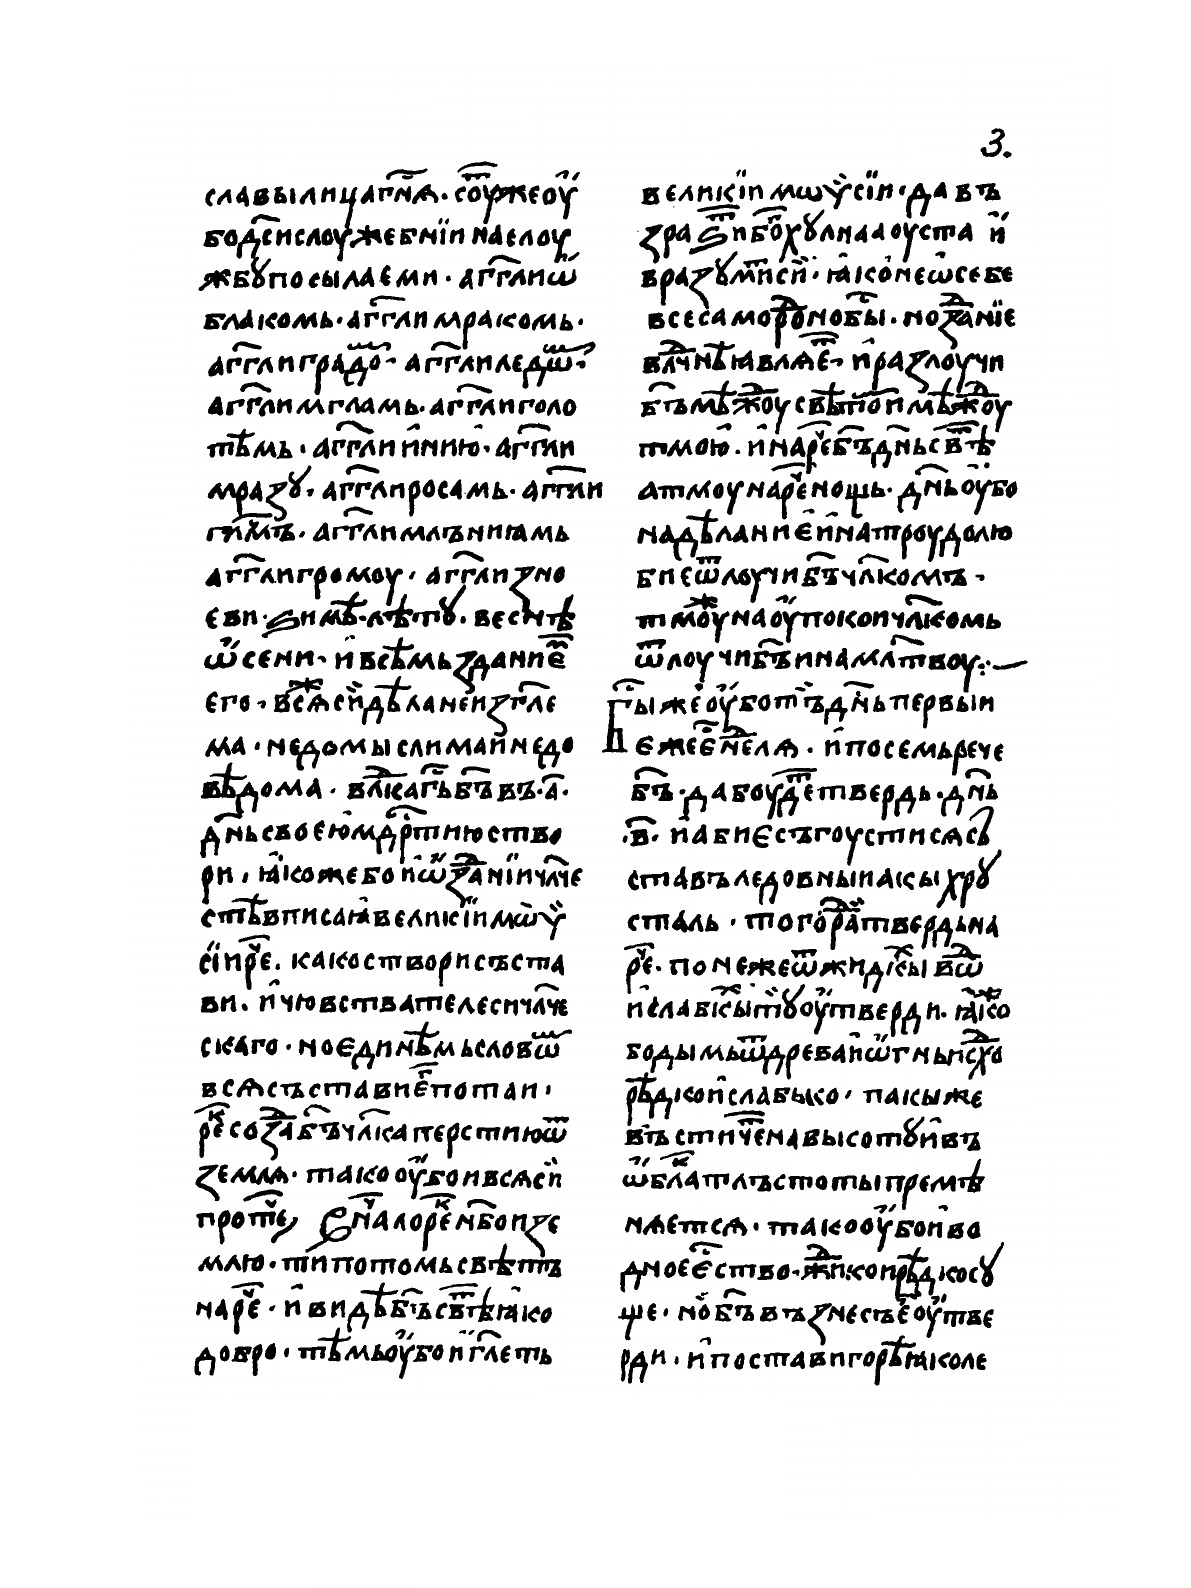 3.
славы лица гн҃ѧ · сꙋ̑т же ᲂу҆
бо дс҃и слоужебнїи на слоу
жбꙋ посылаеми · аг҃гли ѿ
блакомь · аг҃гли мракомь ·
аг҃гли градо · аг҃гли ледѡ ·
аг҃гли мгламь · аг҃гли голо
тѣмь · аг҃гли и҆нию҆ · аг҃гли
мразꙋ · аг҃гли росамь · аг҃гли
аг҃гли млъниꙗмь
аг҃гли громоу · аг҃гли зно
еви · ѕимѣ · лѣтꙋ · веснѣ
ѡ҆сени · и҆ всѣмь зданиє
его · всѧ сїи҆ дѣланеи҆ зг҃ле
ма · недомыслима и҆ недо
вѣдома · влⷣка г҃ь б҃ъ въ · а҃ ·
дн҃ь своею҆ мдрⷭтию ство
ри · ꙗ҆коже бо и҆ ѡ҆ зⷣанїи члч҃е
стѣ вписаꙗ҆ великїи мѡѷ
сїи рⷱе · како створи съста
ви · и҆ чювства телеси члч҃е
скаго · но єдинѣмь словѡ
всѧ съставиє потаи ·
ре созⷣа б҃ъ чл҃ка перстию ѿ
землѧ · тако ᲂу҆бо и всѧ сїи
 зе
млю · ти потомь свѣтъ
нарⷱе · и҆ видѣ б҃ъ свѣтъ ꙗ҆ко
добро · тѣмь ᲂу҆бо и҆ гл҃еть
великїи мѡѷсїи · да въ
зразит бо҃хꙋлнаа оуста и҆
вразꙋмит сїи · ꙗ҆ко не ѡ҆ себе
все саморⷣоно бы · но зⷣанїе
влⷣчнѣ ꙗвлѧеⷮ · и҆ разлоучи
б҃ъ мѣжⷣоу свѣтоⷨ и мѣжⷣоу
тмою҆ · и҆ нарⷱе б҃ъ дн҃ь свѣтъ
а тмоу нарⷱе нощь · дн҃ь ᲂу҆бо
на дѣланиє и҆ на троудолю
биє ѿлоучи б҃ъ чл҃комъ ·
тмоу жⷤ на ᲂу҆покои чл҃комь
ѿлоучи б҃ъ и на млтвоу ⁘ —
Бы же ᲂу҆бо тъ дн҃ь первыи
єже є҆ нⷣелѧ · и҆ по семь рече
б҃ъ · да боудеⷮ твердь · дн҃ь
· в҃ · и҆ абиє съгоусти сѧ съ
ставъ ледовныи акы хрꙋ
сталь · того раⷣ твердь на
рⷱе · понеже ѿ жидкⷭы воⷣ
и҆ слабкⷭы тꙋ ᲂу҆тверди · ꙗ҆ко
бо дымь ѿ древа и҆ ѡ҆гнь исхⷣо
рѣдко и҆ слабько · пакы же
въстичⷮе на высотꙋ и҆ въ
ѡ҆бла тлъстоты премѣ
нѧется · тако ᲂу҆бо и҆ во
дноє є҆ство · жⷣико и рѣдко сꙋ
ще · но҆ б҃ъ възнесъ є҆ ᲂу҆тве
рди · и҆ постави горѣ ꙗ҆ко ле